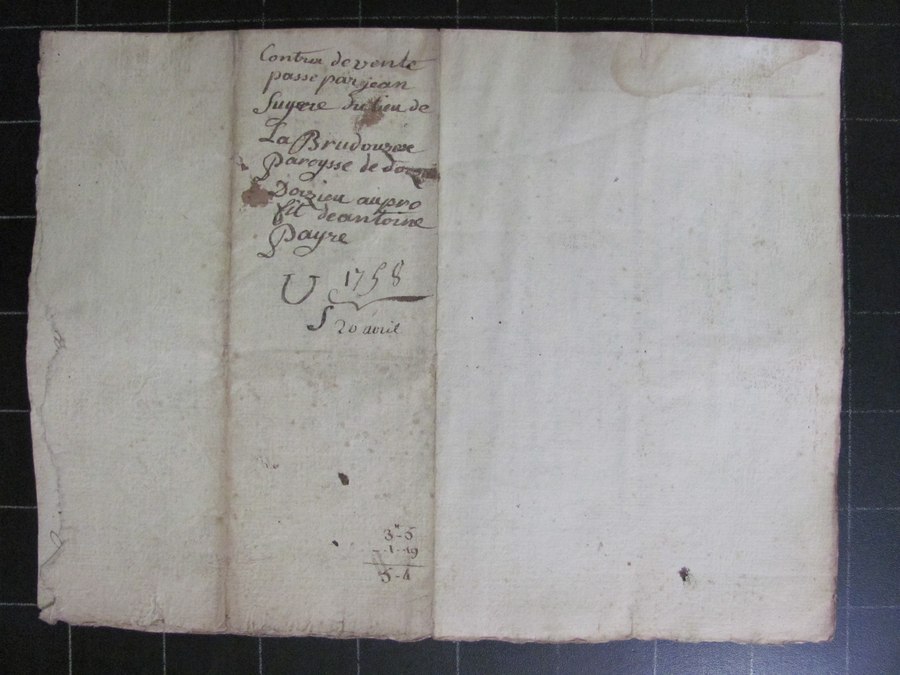 Contra de vente
passe par jean
Suyere du lieu de
La Brudouzere
Paroysse de
Doizieu au pro
fit de antoine
Payre
1758
20 avril
3-5
1-19
5-4